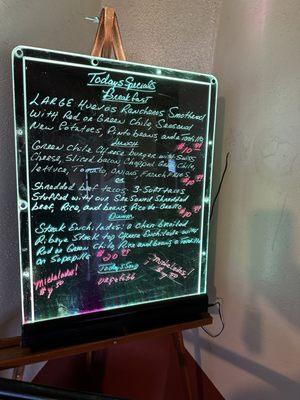 Todays Specials
Breakfast
LARGE Huevos Rancheros Smothered
with Red or Green Chile, Seasoned
New Potatoes, Pinto beans, and a Tortilla
$10.99
Lunch
Green Chile Cheese burger with Swiss
Cheese, Sliced bacon, Chopped Green Chile,
lettuce, Tomato, Onions, French Fries,
$10.99
or
Shredded beef tacos 3-Soft tacos
Stuffed with our Seasoned Shredded
beef, Rice, and beans, Pico de Gallo
$10.99
Dinner
Steak Enchiladas: a Char broiled
Ribeye Steak top Cheese Enchiladas with
Red or Green Chile Rice and beans a Tortilla
or Sopapilla
$20.99
Todays Soup
Vegetable
Micheladas!
$7.50
Micheladas!
$7.50